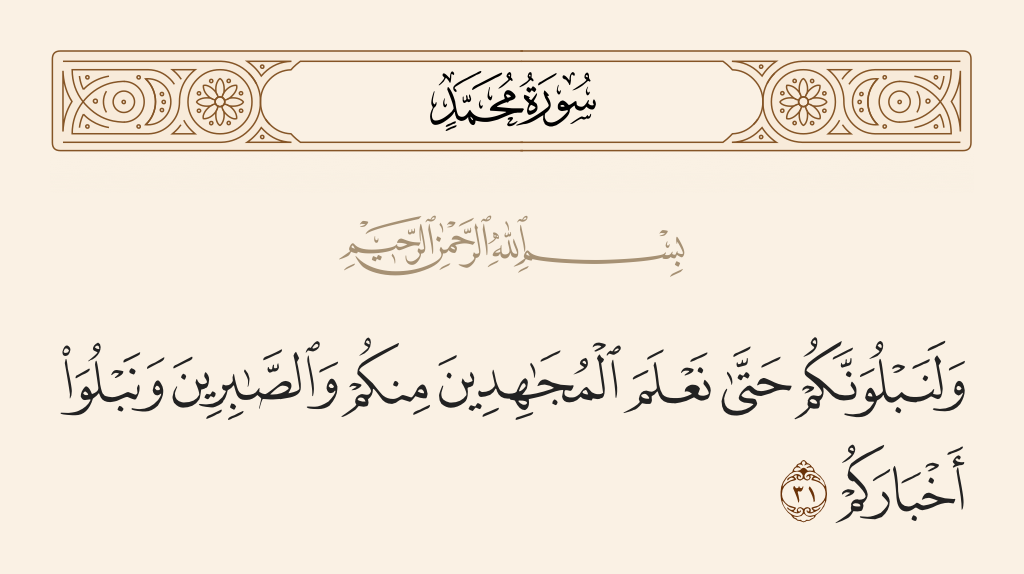 سُورَةُ مُحَمَّدٍ
بِسْمِ ٱللَّهِ ٱلرَّحْمَٰنِ ٱلرَّحِيمِ
وَلَنَبْلُوَنَّكُمْ حَتَّىٰ نَعْلَمَ ٱلْمُجَٰهِدِينَ مِنكُمْ وَٱلصَّٰبِرِينَ وَنَبْلُوَا۟
أَخْبَارَكُمْ ٣١